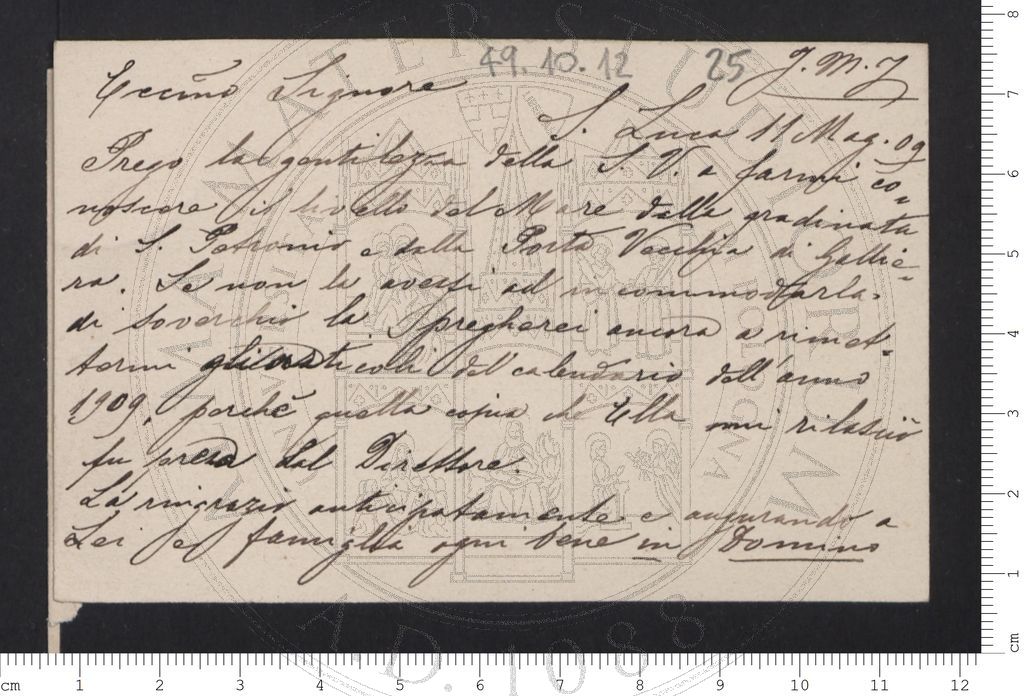 49.10.12 25 J. M. J
Eccmo Signore
S. Luca 11 Mag. 09
Prego la gentilezza della S. V. a farmi co=
noscere il livello del Mare dalla gradinata
di S. Petronio e dalla Porta Vecchia di Gallie=
ra. Se non la avessi ad incommodarla
di soverchio la pregherei ancora a rimet=
termi gli articoli del calendario dell'anno
1909, perchè quella copia che Ella mi rilasciò
fu presa dal Direttore.
La ringrazio anticipatamente e augurando a
Lei e famiglia ogni bene in Domino